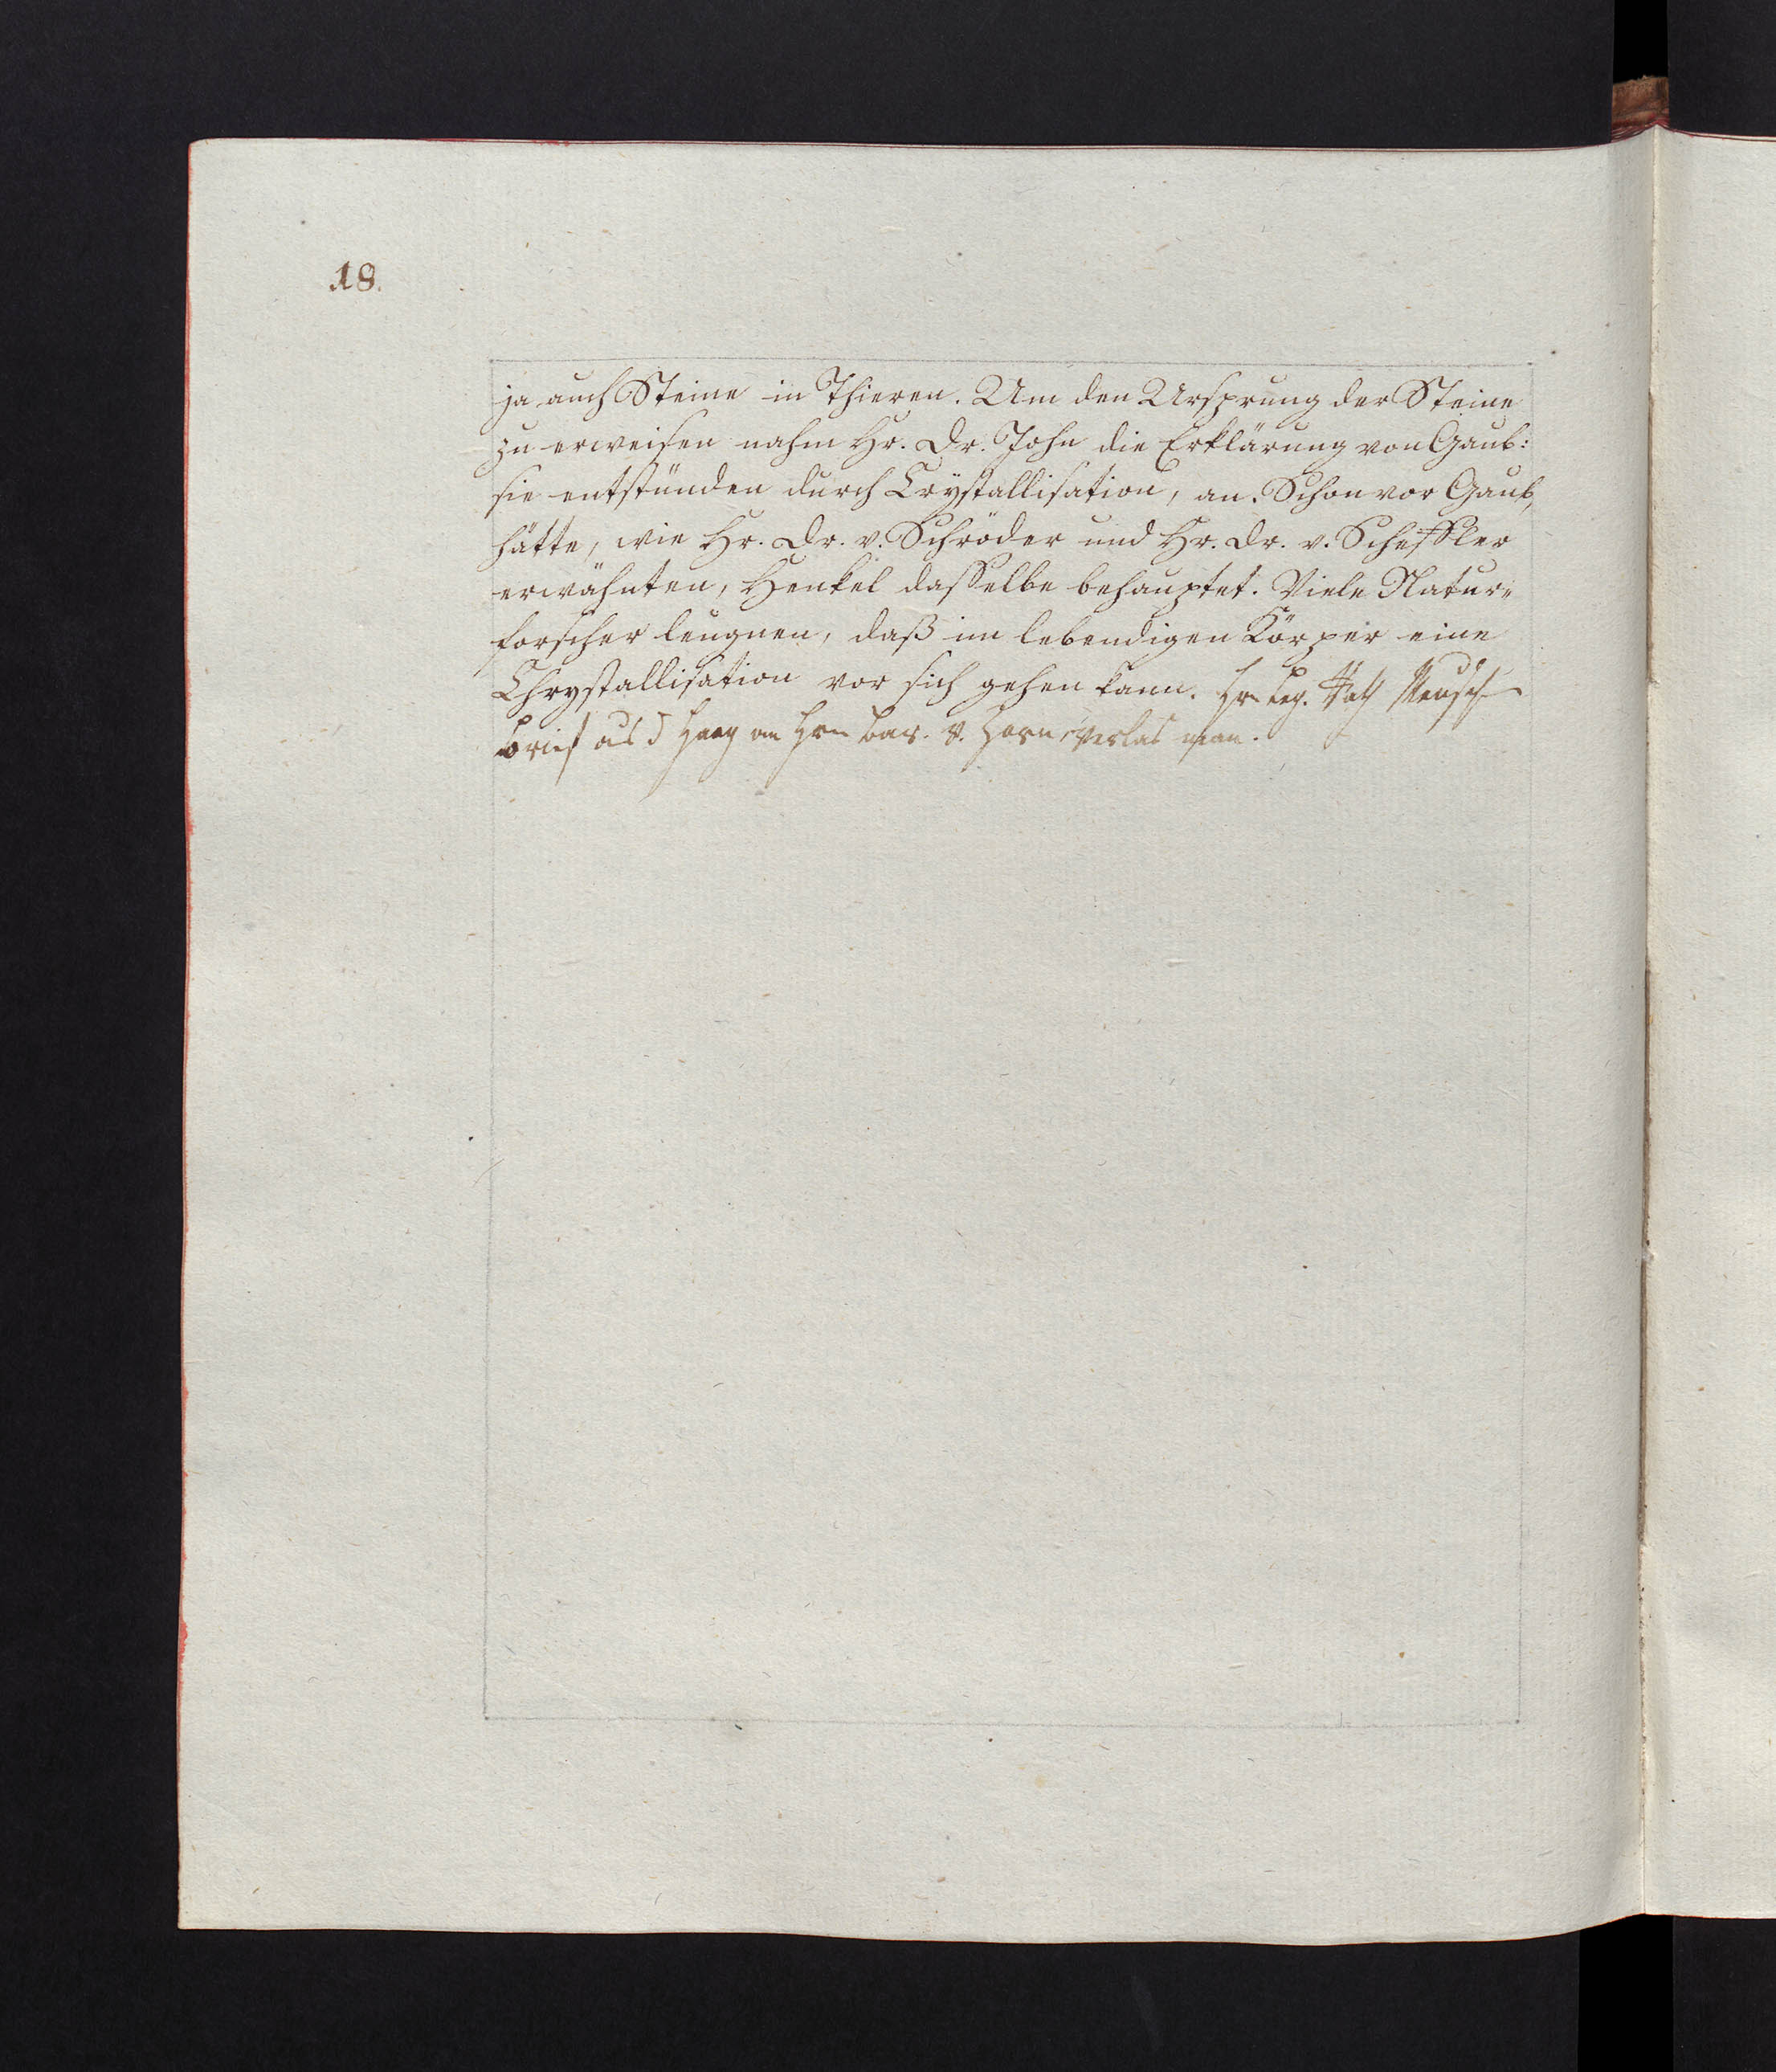 18.
ja auch Steine in Thieren. Um den Ursprung der Steine
zu erweisen nahm Hr. Dr. John die Erklärung von Gaub:
sie entstünden durch Crystallisation, an. Schon vor Gaub,
hätte, wie Hr. Dr. v. Schröder und Hr. Dr. v. Scheffler
erwähnten, Henkel dasselbe behauptet. Viele Natur„
forscher leugnen, daß im lebendigen Körper eine
Chrystallisation vor sich gehen kann. Hrn Leg. Rath Meusch
Brief aus d Haag an Hrn Bar. v. Zorn verlas man.